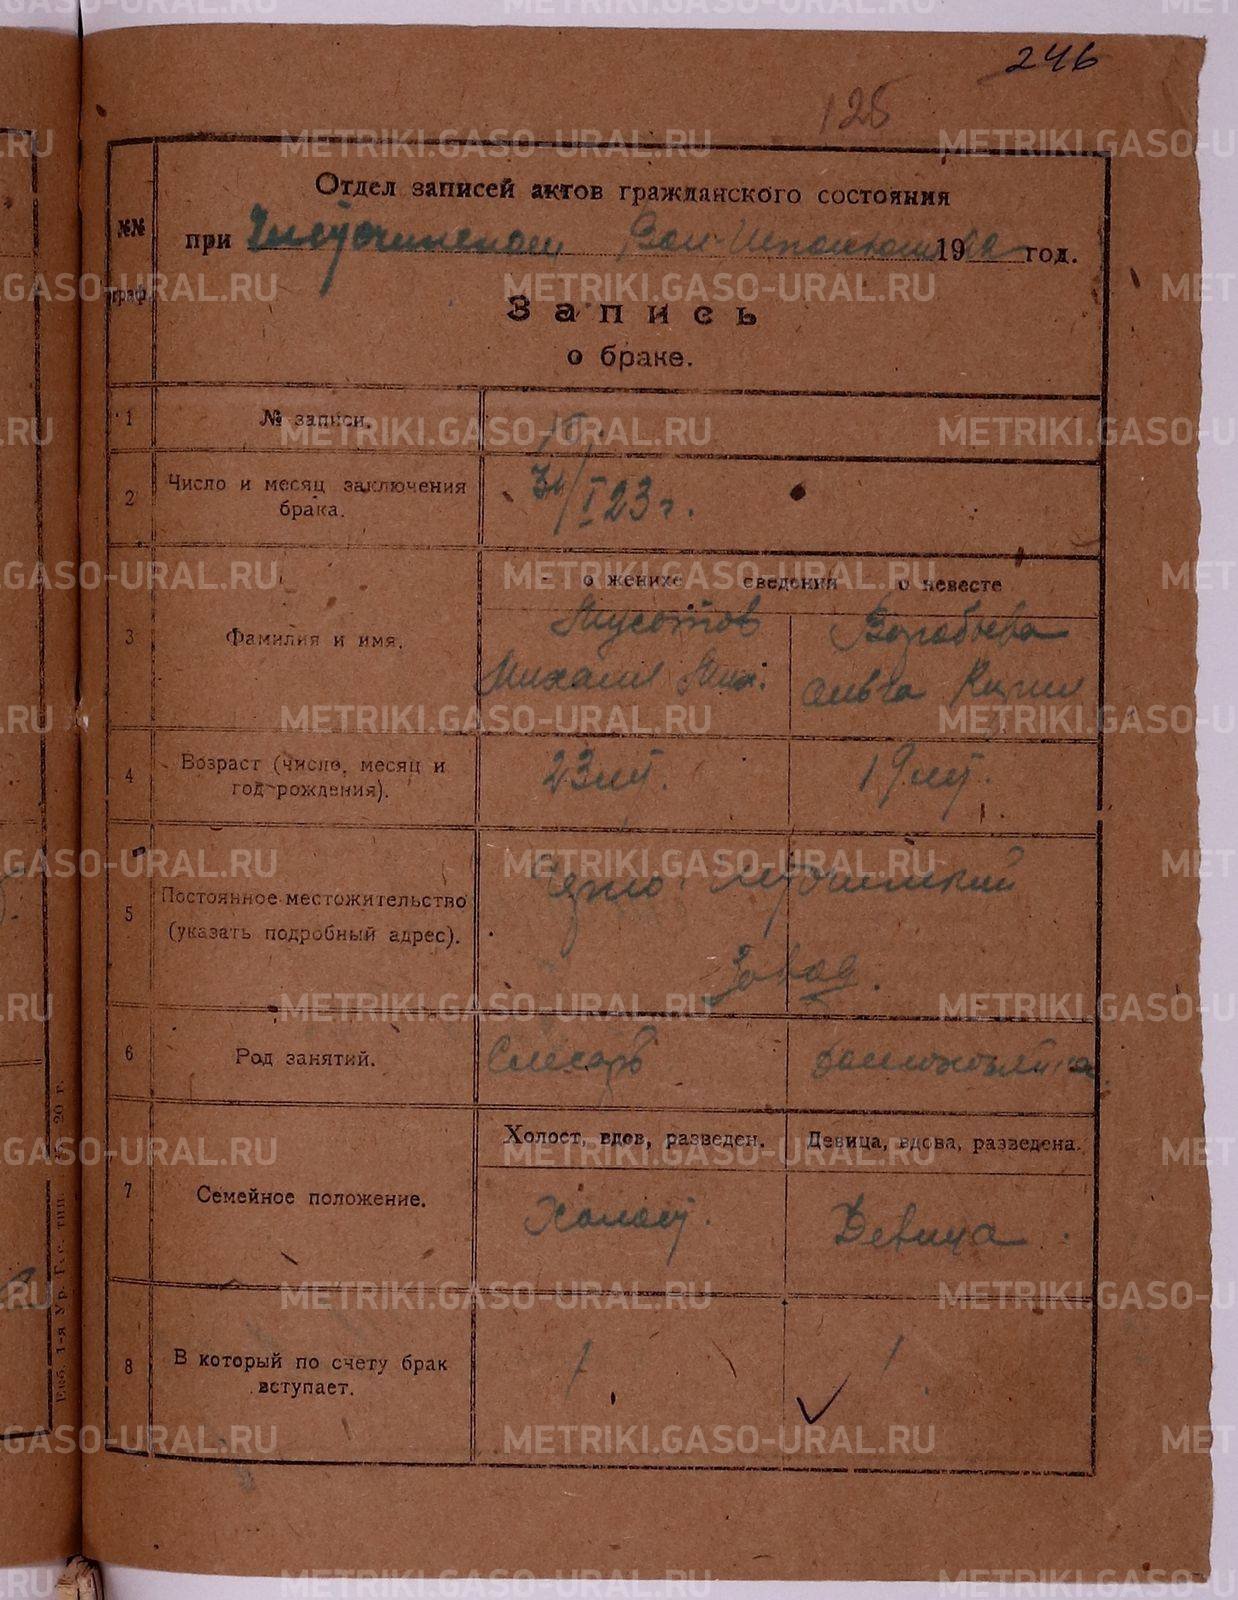 246
125
Отдел записей актов гражданского состояния
№№
граф.
при Вол-Исполкоме 1922 год.
Запись
о браке.
1 № записи. 10.
2 Число и месяц заключения брака. 31/I 23 г.
о женихе сведения о невесте
3 Фамилия и имя.
Мусотов Воробьева
Михаил Мих. Ольга Кирил
4 Возраст (число, месяц и год рождения). 23 лет. 19 лет.
5 Постоянное местожительство (указать подробный адрес).
Завод.
6 Род занятий. Слесарь домохозяйка
Холост, вдов, разведен. Девица, вдова, разведена.
7 Семейное положение. Холост. Девица.
8 В который по счету брак вступает. 1 1
Екб. 1-я Ур. Гос. тип. 20 г.
METRIKI.GASO-URAL.RU